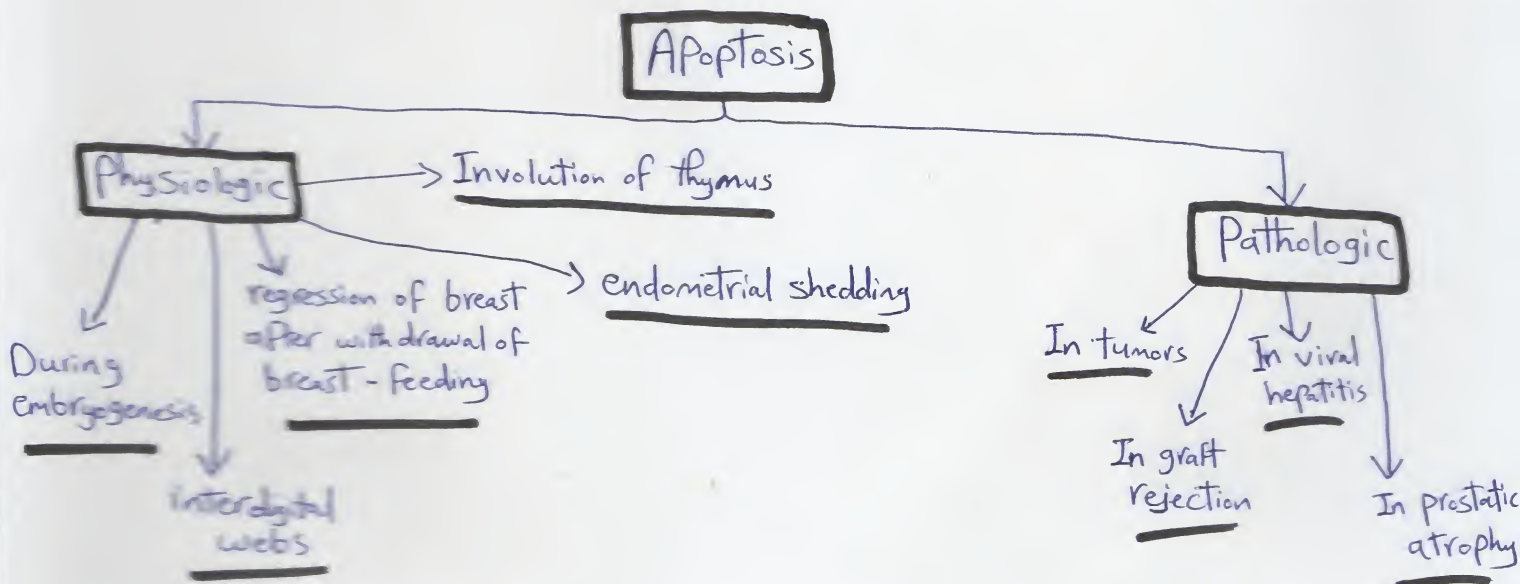 Apoptosis
Physiologic
Involution of thymus
endometrial shedding
regression of breast
after withdrawal of
breast-feeding
During
embryogenesis
interdigital
webs
Pathologic
In tumors
In viral
hepatitis
In graft
rejection
In prostatic
atrophy